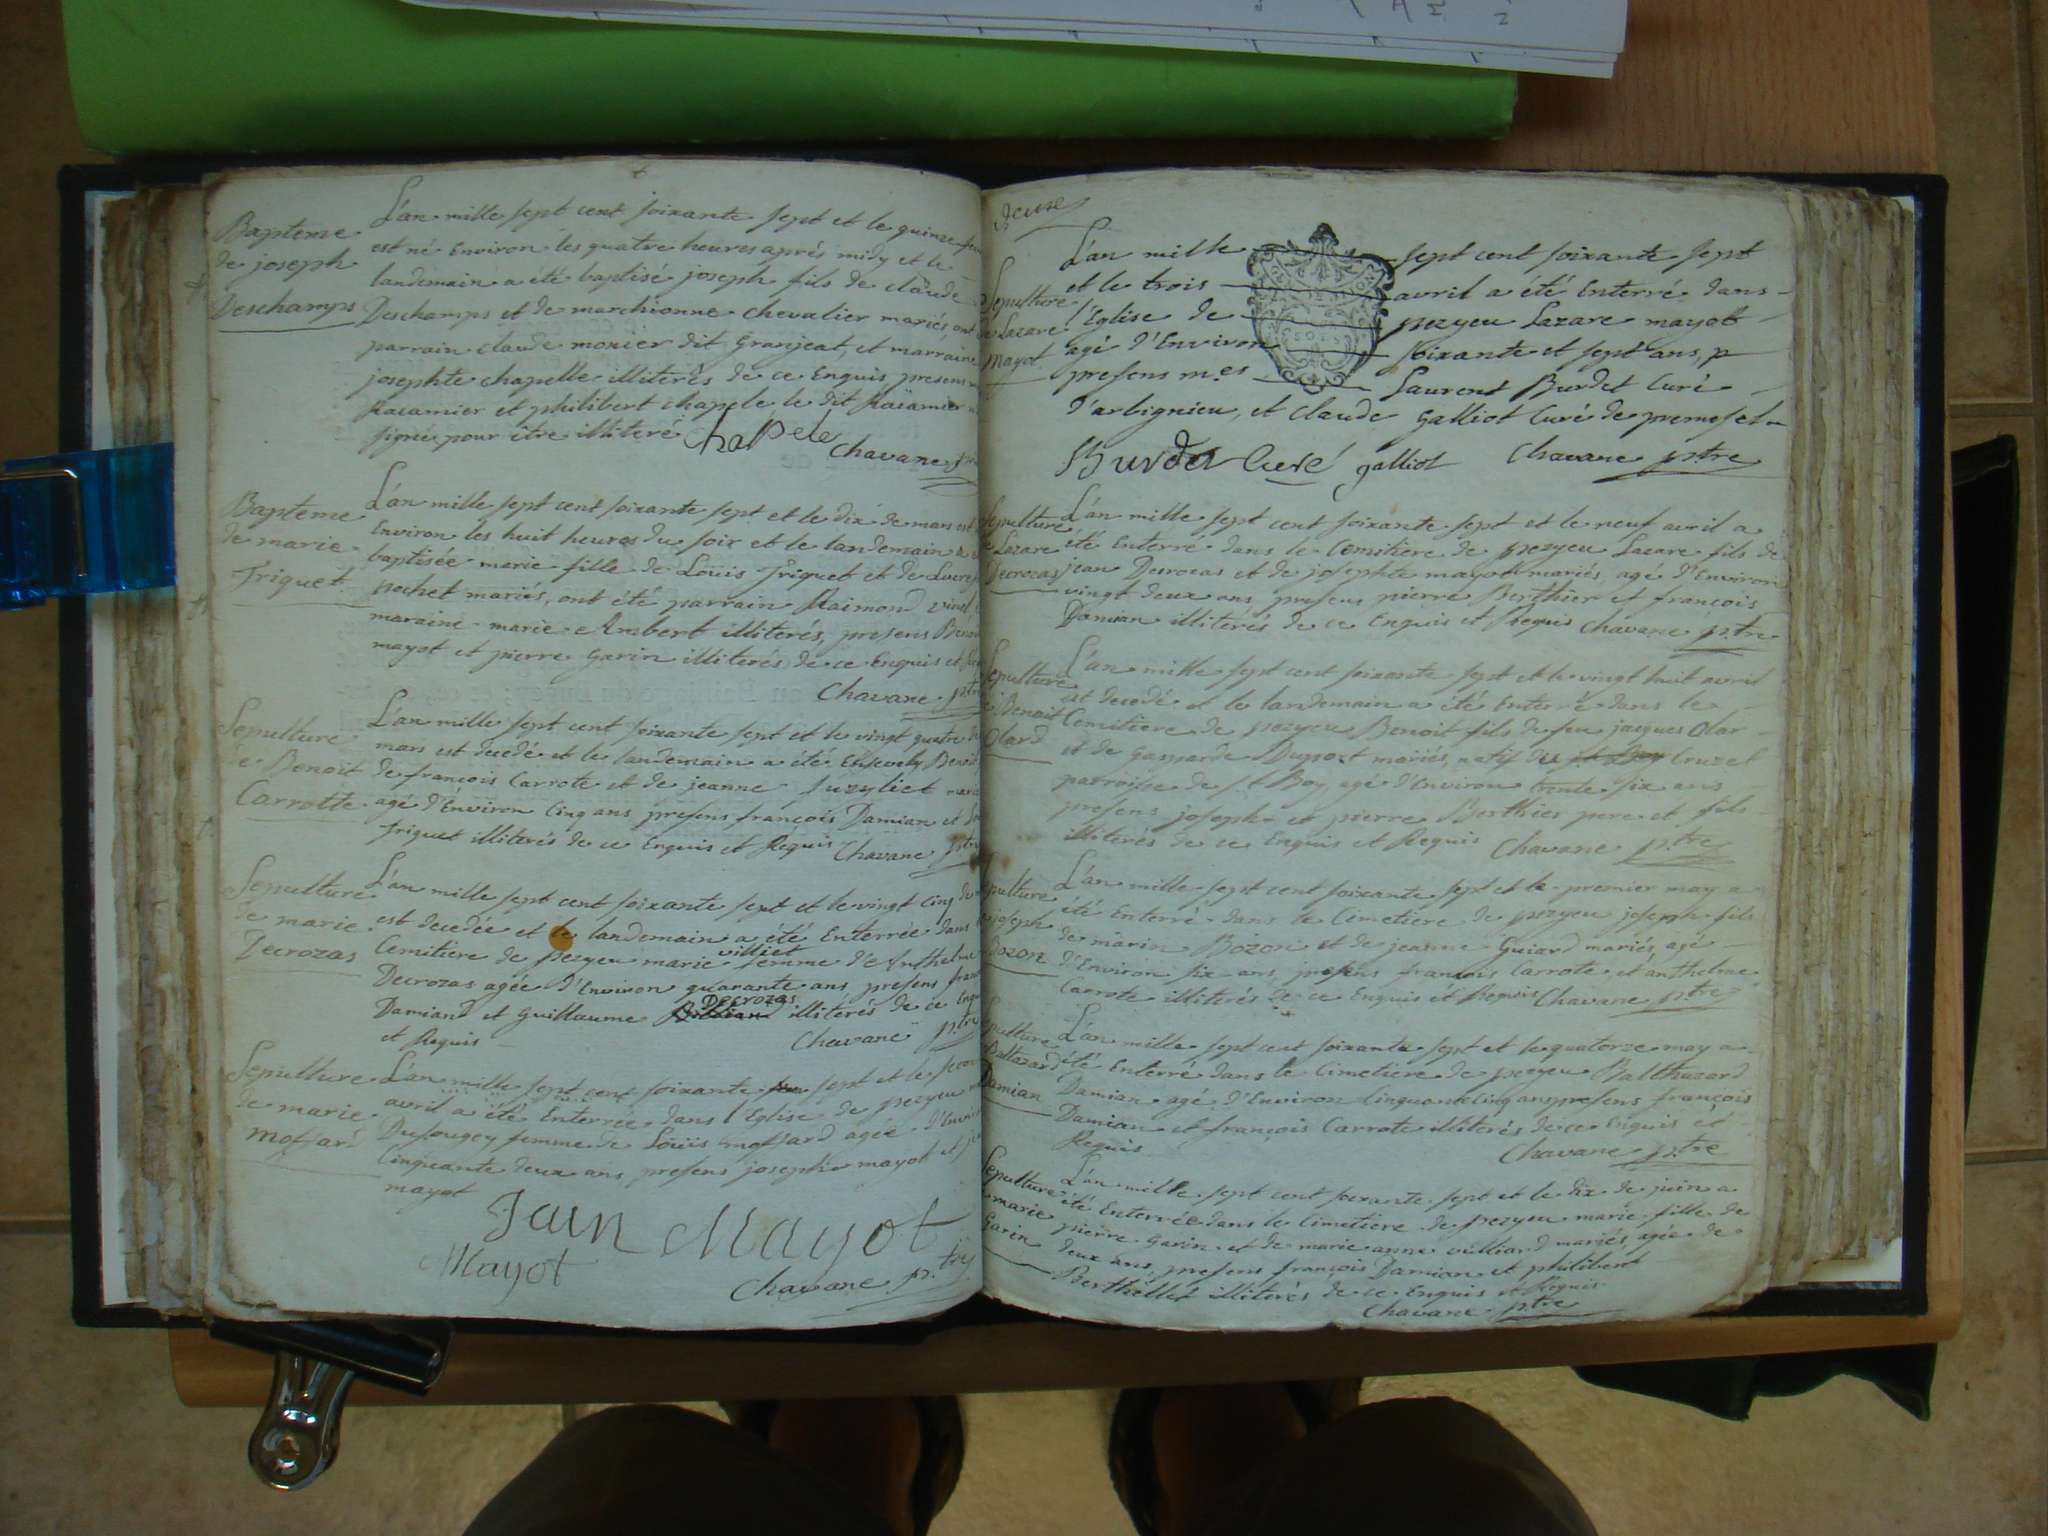 Bapteme
de joseph
Deschamps
L'an mille sept cent soixante sept et le quinze
est né Environ les quatre heures aprés midy et le
landemain a été baptisé joseph fils de claude
Deschamps et de marchionne chevalier mariés, ont
parrain claude monier dit Granjeat, et marraine
josephte chapelle illiterés de ce Enquis presens
Racamier et philibert chapele le dit Racamier
signé pour être illiteré
chapele
Chavane
Bapteme
de marie
Triquet
L'an mille sept cent soixante sept et le dix de mars est
Environ les huit heures du soir et le landemain a
baptisée marie fille de Loüis Triquet et de
pochet mariés, ont été parrain Raimond
maraine marie Ambert illiterés, presens
mayot et pierre Garin illiterés de ce Enquis et
Chavane ptre
Sepulture
de Benoit
Carrotte
L'an mille sept cent soixante sept et le vingt quatre
mars est decedé et le landemain a été Ensevely Benoit
de françois Carrote et de jeanne
agé d'Environ Cinq ans, presens françois Damian et
Triquet illiterés de ce Enquis et Requis Chavane ptre
Sepulture
de marie
Decrozas
L'an mille sept cent soixante sept et le vingt Cinq de
est decedée et le landemain a été Enterrée dans
Cemitiere de pezyeu marie villiet femme d'Anthelme
Decrozas agée d'Environ quarante ans presens
Damian et Guillaume Decrozas illiterés de ce
et Requis
Chavane ptre
Sepulture
de marie
Mossard
L'an mille sept cent soixante sept et le
avril a été Enterrée dans l'Eglise de pezyeu
Dufougey femme de Loüis mossard agée
Cinquante deux ans, presens joseph mayot et
mayot
Jean Mayot
Mayot
Chavane ptre
Sepulture
de Lazare
Mayot
L'an mille sept cent soixante sept
et le trois avril a été Enterré dans
l'Eglise de pezyeu Lazare mayot
agé d'Environ soixante et sept ans,
presens mes Laurent Burdet Curé
d'arbignieu, et claude Galliot Curé de premeset
Burdet Curé galliot Chavane ptre
Sepulture
de Lazare
Decrozas
L'an mille sept cent soixante sept et le neuf avril a
été Enterré dans le Cemitiere de pezyeu Lazare fils de
jean Decrozas et de josephte mayot mariés, agé d'Environ
vingt deux ans, presens pierre Berthier et françois
Damian illiterés de ce Enquis et Requis Chavane ptre
Sepulture
Benoit
Olard
L'an mille sept cent soixante sept et le vingt huit avril
est decedé et le landemain a été Enterré dans le
Cemitiere de pezyeu Benoit fils de feu jacques Olar
et de Gasparde Dupont mariés, natif de Cruzet
parroisse de St Boy, agé d'Environ trente six ans
presens joseph et pierre Berthier pere et fils
illiterés de ce Enquis et Requis Chavane ptre
Sepulture
joseph
Bozon
L'an mille sept cent soixante sept et le premier may a
été Enterré dans le Cemetiere de pezyeu joseph fils
de marin Bozon et de jeanne Guiard mariés, agé
d'Environ six ans, presens françois Carrote, et anthelme
Carrote illiterés de ce Enquis et Requis Chavane ptre
Sepulture
Baltazard
Damian
L'an mille sept cent soixante sept et le quatorze may a
été Enterré dans le Cimetiere de pezyeu Balthazard
Damian agé d'Environ Cinquante Cinq ans presens françois
Damian et françois Carrote illiterés de ce Enquis et
Requis
Chavane ptre
Sepulture
marie
Garin
L'an mille sept cent soixante sept et le dix de juin a
été Enterrée dans le Cimetiere de pezyeu marie fille de
pierre Garin et de marie anne villiard mariés, agée de
deux ans, presens françois Damian et philibert
Berthellet illiterés de ce Enquis et Requis
Chavane ptre